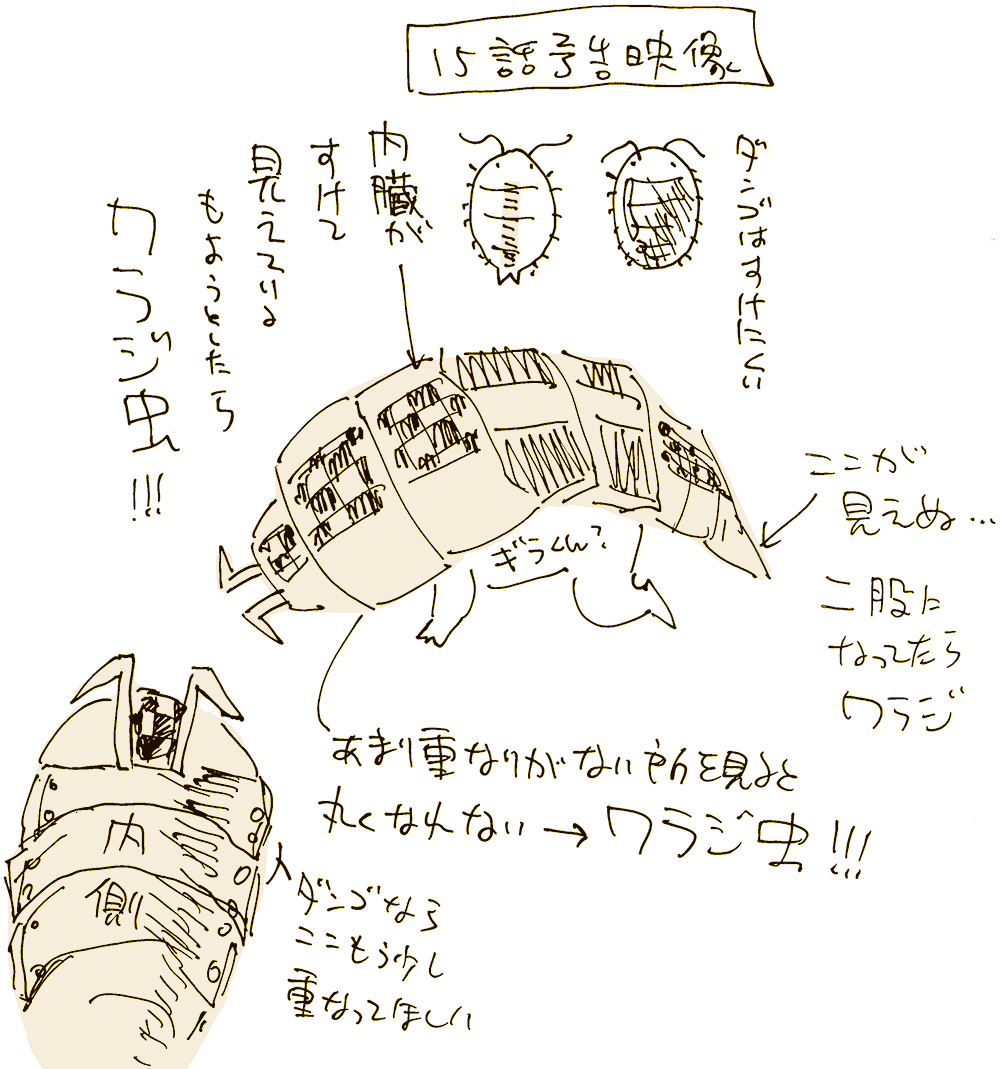 15話予告映像
ダンゴはすけにくい
内臓が
すけて
見えている
もようとしたら
ワラジ虫!!!
ここが
見えぬ…
二股に
なってたら
ワラジ
ギラくん?
あまり重なりがない所を見ると
丸くなれない→ワラジ虫!!!
内
側
ダンゴなら
ここもう少し
重なってほしい